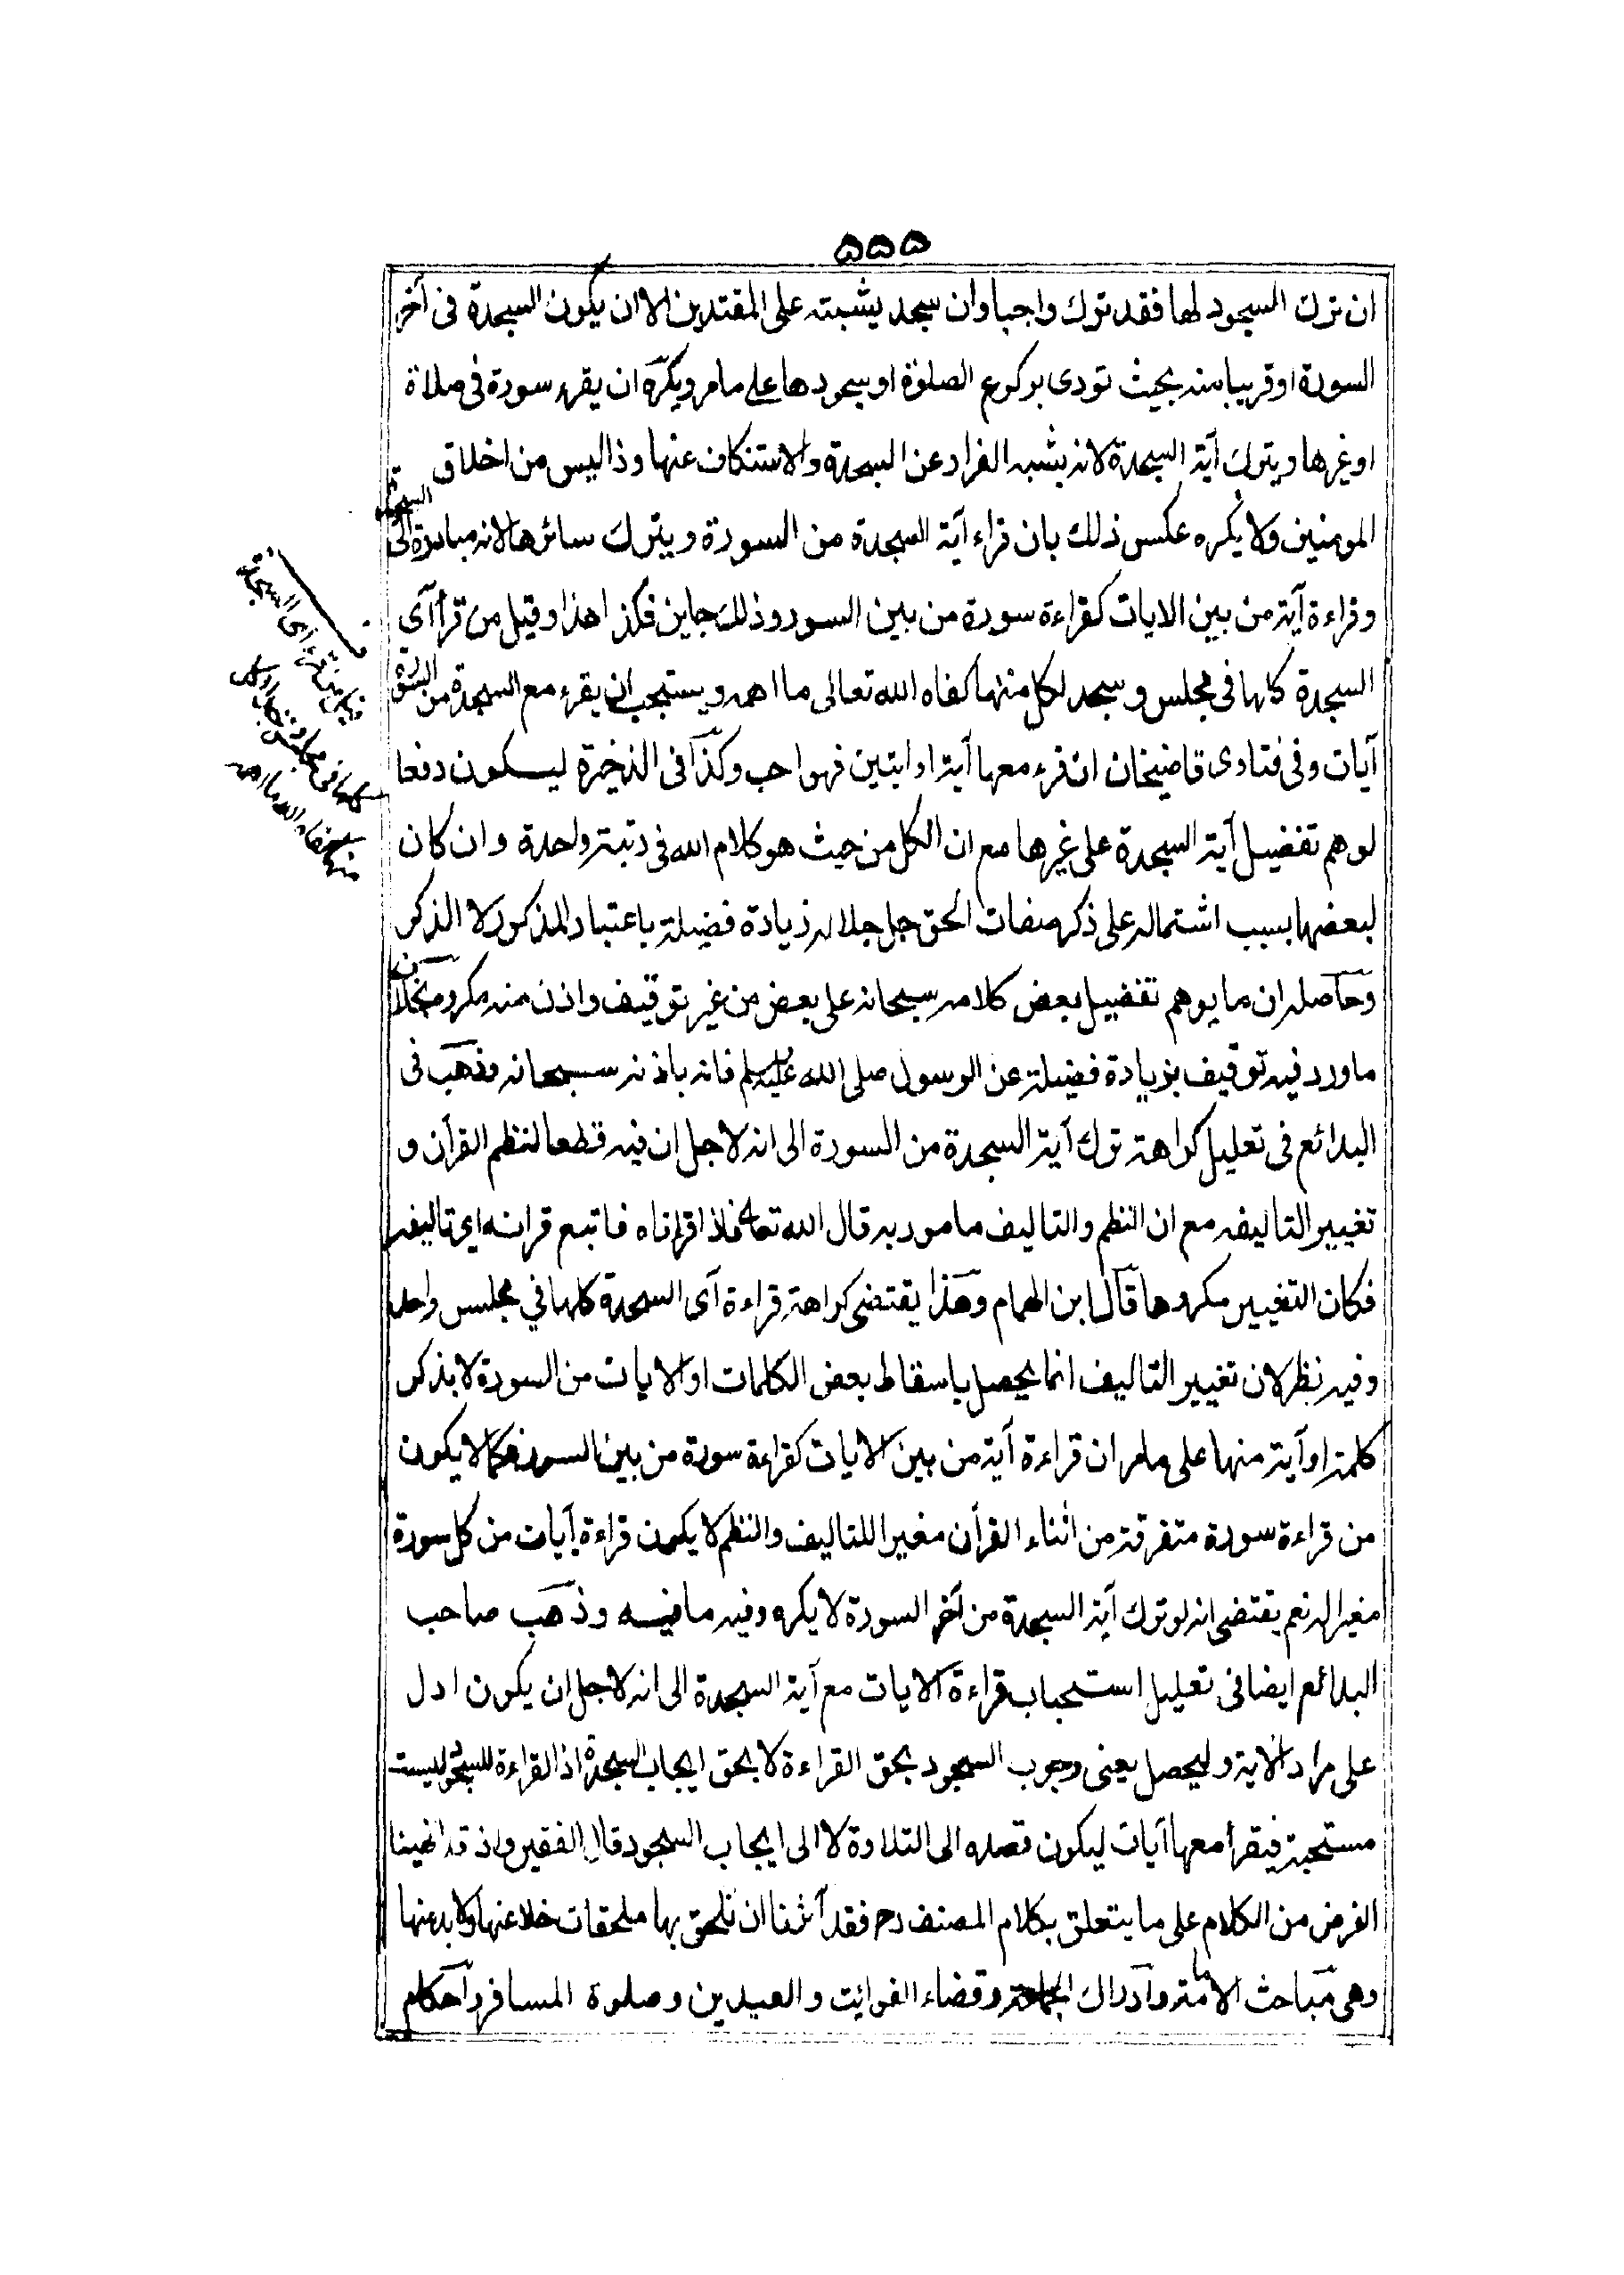 ۵۵۵
ان ترك السجود لها فقد ترك واجبا وان سجد يشبته على المقتدين الا ان يكون السجدة فى آخر
السورة او قريبا منه بحيث تودى بركوع الصلوة او سجودها على ما مر ويكره ان يقرء سورة فى صلاة
او غيرها ويترك آية السجدة لانه يشبه الفرار عن السجدة والاستنكاف عنها وذا ليس من اخلاق
المومنين ولا يكره عكس ذلك بان قراء آية السجدة من السورة ويترك سائرها لانه مبادرة الى السجدة
وقراءة آية من بين الايات كقراءة سورة من بين السور وذلك جاين فكذا هذا وقيل من قرأ آى
السجدة كلها فى مجلس وسجد لكل منها كفاه الله تعالى ما اهمه ويستحب ان يقرء مع السجدة من السورة
آيات وفى فتاوى قاضيخان ان قرء معها آية او ايتين فهو احب وكذا فى الذخيرة ليكون دفعا
لوهم تفضيل آية السجدة على غيرها مع ان الكل من حيث هو كلام الله فى رتبة واحدة وان كان
لبعضها بسبب اشتماله على ذكر صفات الحق جل جلاله زيادة فضيلة باعتبار المذكور لا الذكر
وحاصله ان ما يوهم تفضيل بعض كلامه سبحانه على بعض من غير توقيف واذن منه مكروه بخلاف
ما ورد فيه توقيف بزيادة فضيلة عن الرسول صلى الله عليه وسلم فانه باذنه سبحانه وذهب فى
البدائع فى تعليل كراهة ترك آية السجدة من السورة الى انه لاجل ان فيه قطعا لنظم القرآن و
تغيير التاليفه مع ان النظم والتاليف مامور به قال الله تعالى فاذا قراناه فاتبع قرانه اى تاليفه
فكان التغيير مكروها قال ابن الهمام وهذا يقتضى كراهة قراءة آى السجدة كلها في مجلس واحد
وفيه نظر لان تغيير التاليف انما يحصل باسقاط بعض الكلمات او الايات من السورة لا بذكر
كلمة او آية منها على ما مر ان قراءة آية من بين الايات كقراءة سورة من بين السور فكما لا يكون
من قراءة سورة متفرقة من اثناء القرأن مغيرا للتاليف والنظم لا يكون قراءة آيات من كل سورة
مغيرا له نعم يقتضى انه لو ترك آية السجدة من آخر السورة لا يكره وفيه ما فيه وذهب صاحب
البدائع ايضا فى تعليل استحباب قراءة الايات مع آية السجدة الى انه لاجل ان يكون ادل
على مراد الاية وليحصل يعنى وجوب السجود بحق القراءة لا بحق ايجاب السجدة اذ القراءة للسجود ليست
مستحبة فيقرأ معها آيات ليكون قصده الى التلاوة لا الى ايجاب السجود قال الفقير واذ قد انهينا
الغرض من الكلام على ما يتعلق بكلام المصنف رح فقد آثرنا ان نلحق بها ملحقات خلا عنها ولا بد عنها
وهى مباحث الامامة وادراك الجماعة وقضاء الفوائت والعيدين وصلوة المسافر واحكام